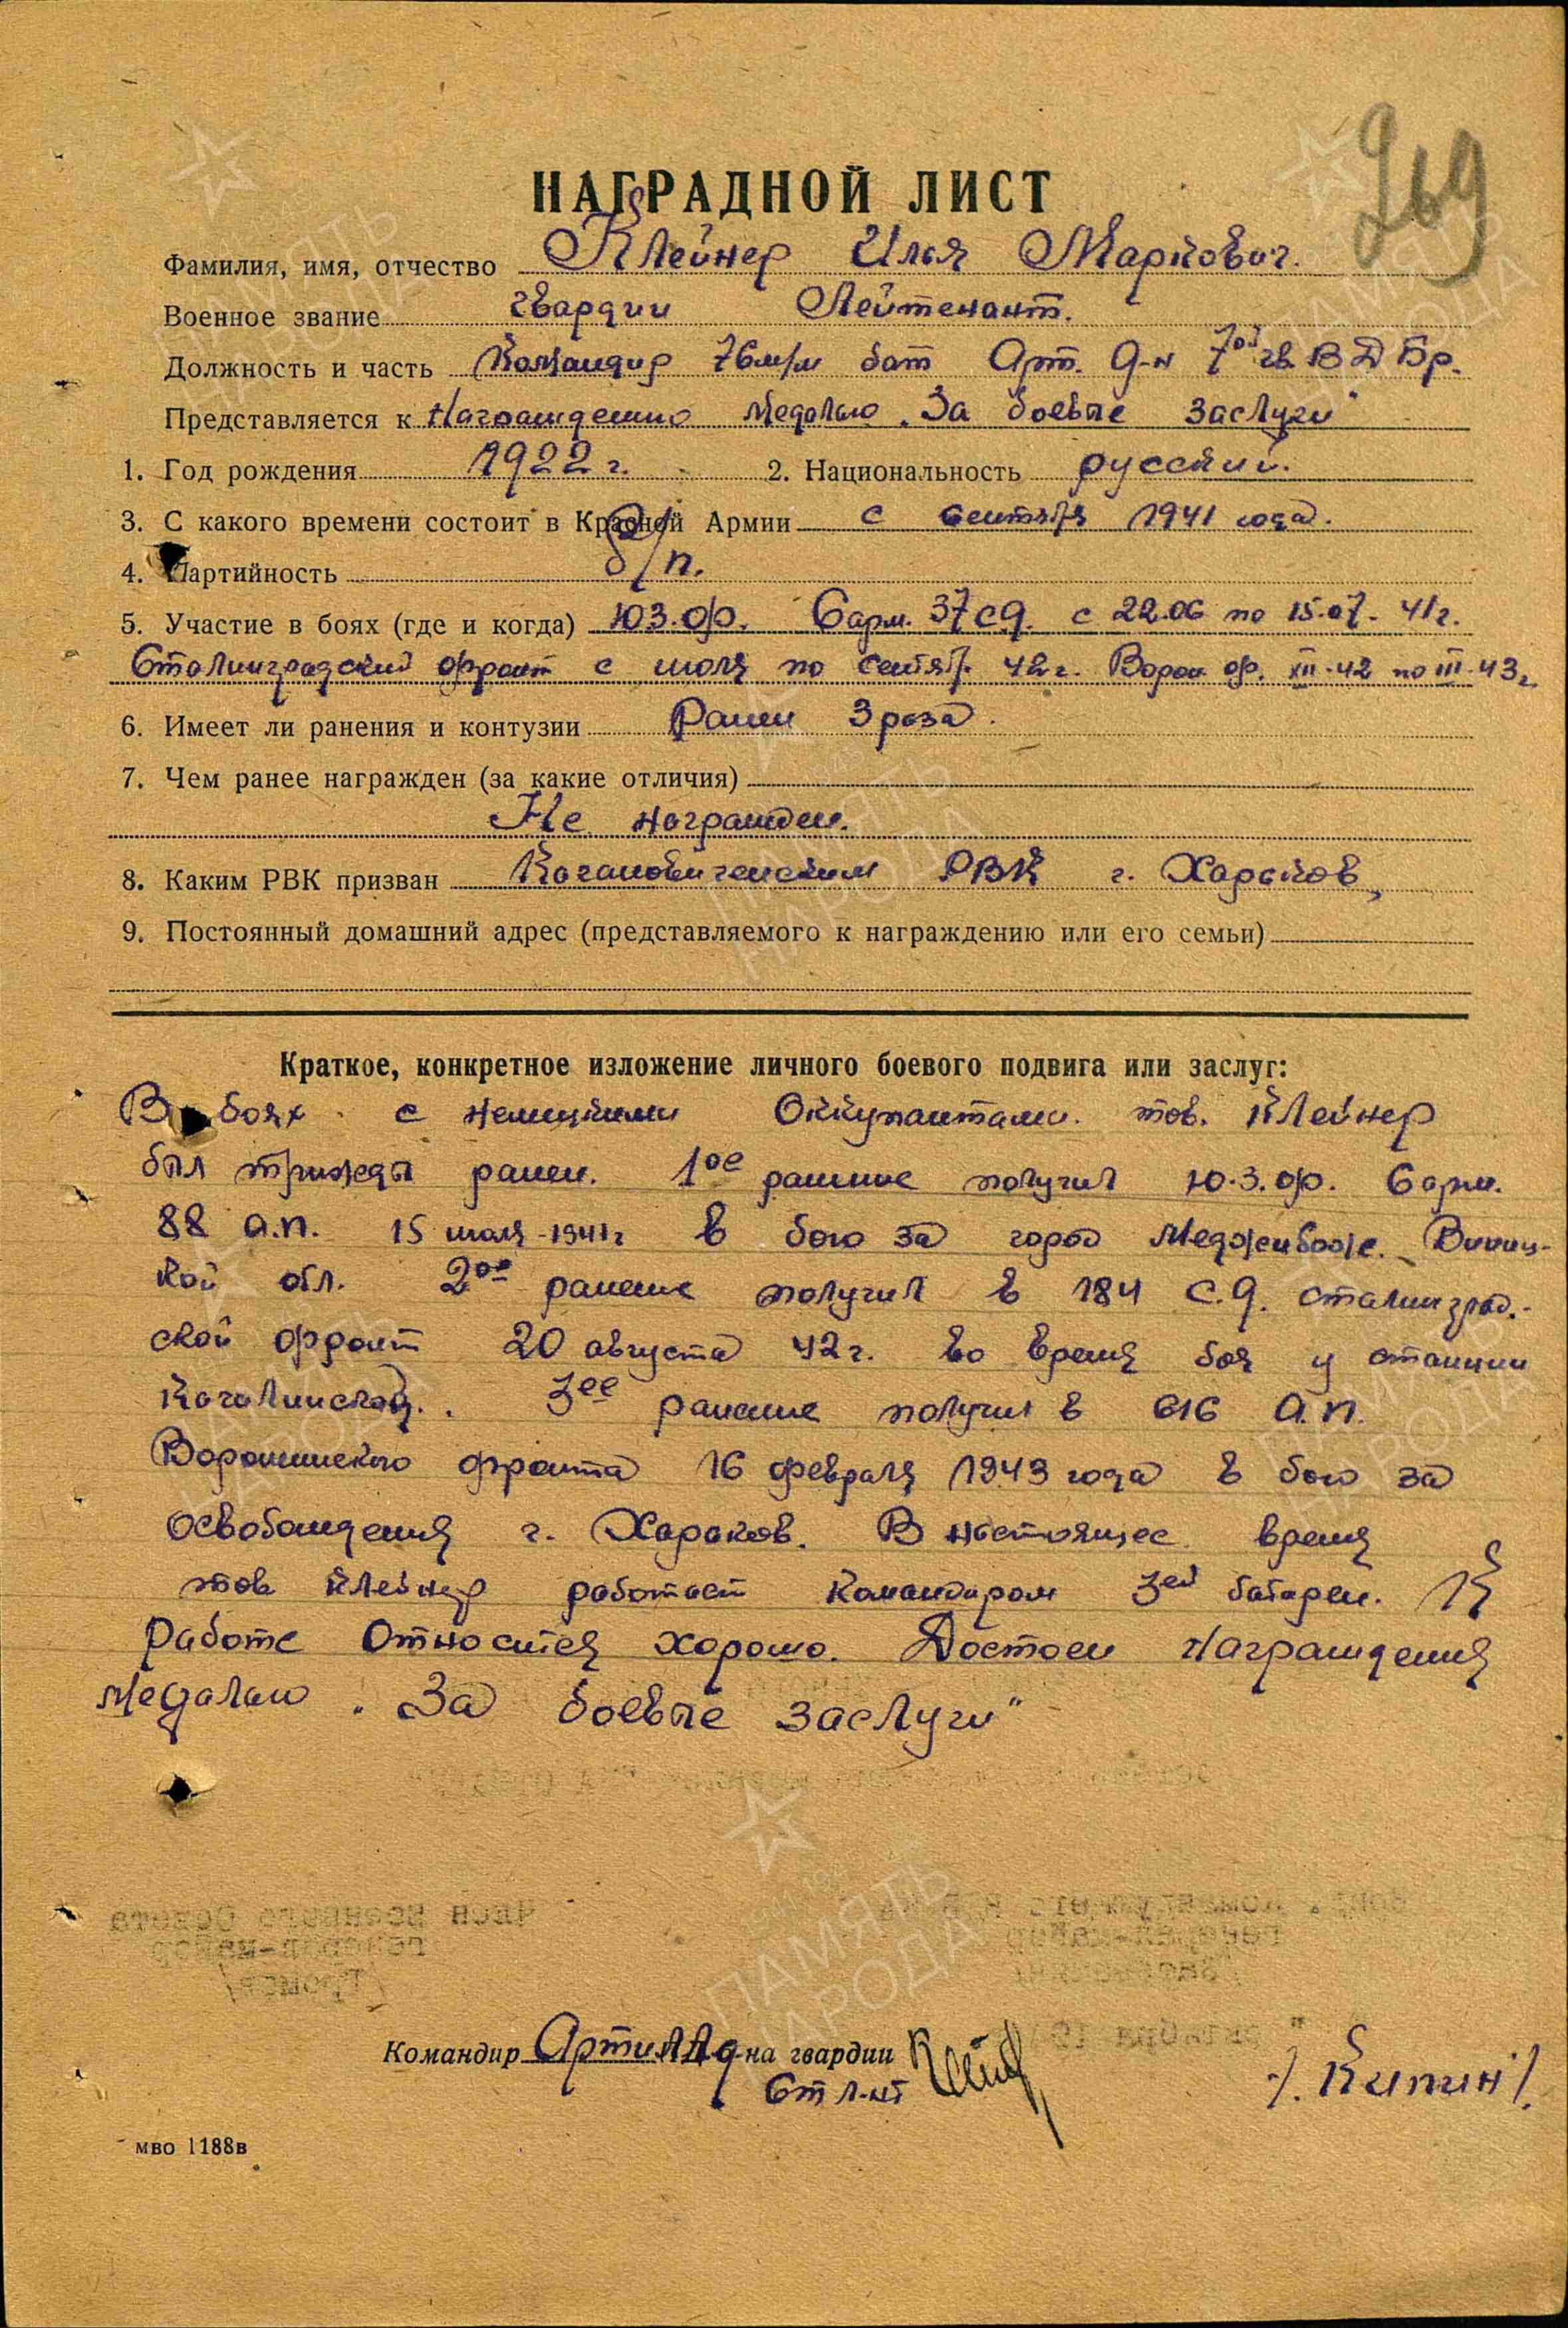 269
НАГРАДНОЙ ЛИСТ
Фамилия, имя, отчество Клейнер Илья Маркович.
Военное звание гвардии Лейтенант.
Должность и часть Командир 76м/м бат Арт. д-н 7ой гв. ВДБр.
Представляется к Награждению медалью „За боевые заслуги"
1. Год рождения 1922 г. 2. Национальность русский.
3. С какого времени состоит в Красной Армии с сентября 1941 года.
4. Партийность б/п.
5. Участие в боях (где и когда) Ю.З.Ф. 6 арм. 37 сд. с 22.06 по 15.07.41г.
Сталинградский фронт с июля по сентяб. 42г. Ворон. ф. XII-42 по III-43г.
6. Имеет ли ранения и контузии Ранен 3 раза.
7. Чем ранее награжден (за какие отличия)
Не награжден.
8. Каким РВК призван Кагановическим РВК г. Харьков,
9. Постоянный домашний адрес (представляемого к награждению или его семьи)
Краткое, конкретное изложение личного боевого подвига или заслуг:
В боях с немецкими Оккупантами. тов. Клейнер
был трижды ранен. 1ое ранение получил Ю.З.Ф. 6 арм.
88 а.п. 15 июля-1941г в бою за город Меджибоже. Винниц-
кой обл. 2ое ранение получил в 184 С.Д. сталинград.-
ской фронт 20 августа 42г. во время боя у станции
Качалинская. 3ее ранение получил в 616 А.П.
Воронежского фронта 16 февраля 1943 года в бою за
освобождения г. Харьков. В настоящее время
тов Клейнер работает Командиром 3ей батареи. К
работе Относится хорошо. Достоен Награждения
медалью „За боевые заслуги"
Член Военного Совета
генерал-майор
/Громов/
генерал-майор
Командир Артил д-на гвардии
Ст л-нт
/. Кипин /.
мво 1188в
ПАМЯТЬ
НАРОДА